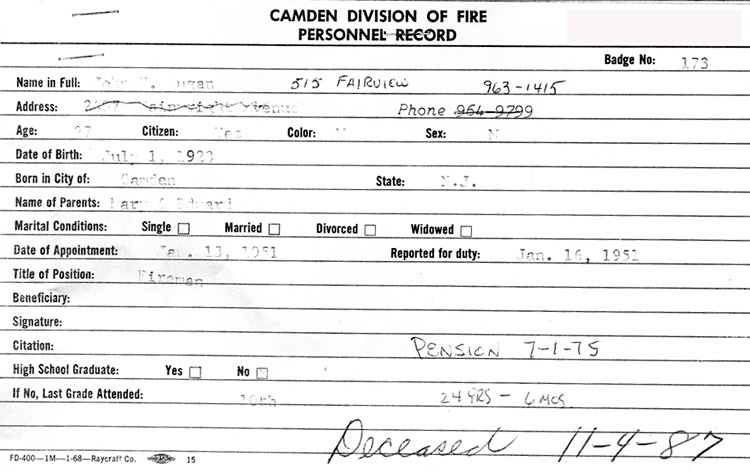 CAMDEN DIVISION OF FIRE
PERSONNEL RECORD
Badge No: 173
Name in Full: John 515 FAIRVIEW 963-1415
Address: Phone 964-9799
Age: 27 Citizen: Yes Color: Sex: M
Date of Birth: July 1, 1923
Born in City of: Camden State: N.J.
Name of Parents: Mary & Edward
Marital Conditions: Single Married Divorced Widowed
Date of Appointment: Jan. 13, 1951 Reported for duty: Jan. 16, 1951
Title of Position: Fireman
Beneficiary:
Signature:
Citation: PENSION 7-1-75
High School Graduate: Yes No
If No, Last Grade Attended: 10th 24 YRS - 6 MOS.
Deceased 11-4-87
FD-400—1M—1-68—Raycraft Co. 15